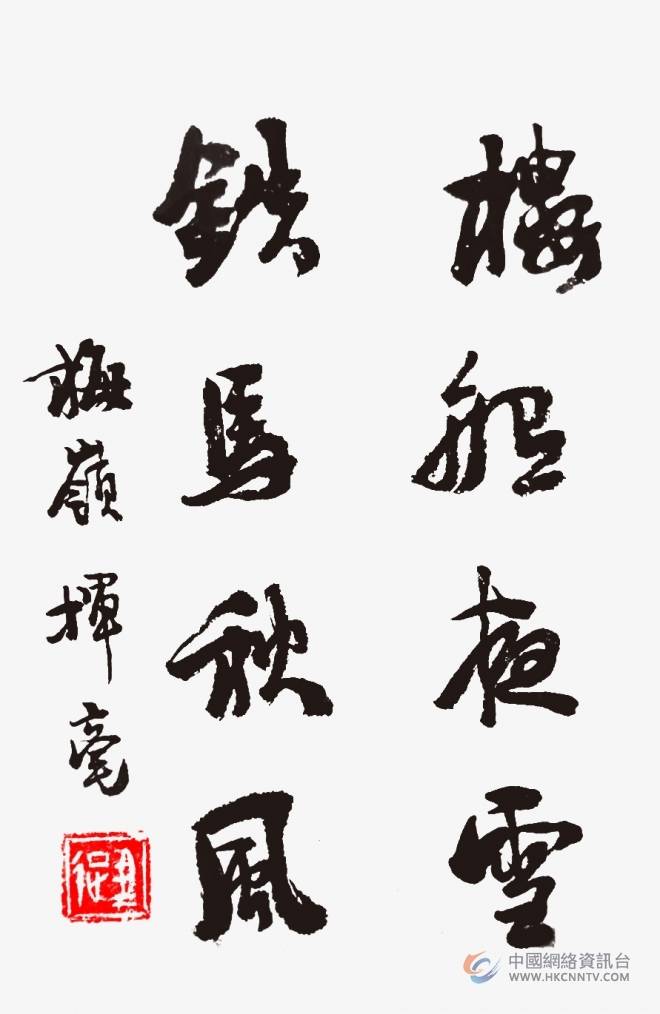 樓船夜雪
鐵馬秋風
梅嶺揮毫
中國網絡資訊台
WWW.HKCNNTV.COM